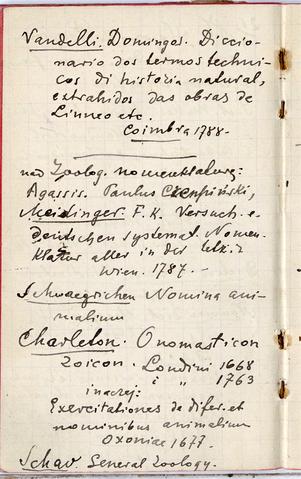 Vandelli, Domingos. Diccio-
nario dos termos techni-
cos di historia natural,
extrahidos das obras de
Linneo etc.
Coimbra 1788.
nad Zoolog. nomenklaturą:
Agassis. Paulus Czenpiński,
Meidinger. F. K. Versuch e.
deutschen systemat. Nomen-
klatur aller in der letzt.
Wien. 1787. –
Schwaegrichen Nomina ani-
malium
Charleton. Onomasticon
Zoicon. Londini 1668
i " 1763
inaczej:
Exercitationes de difer. et
nominibus animalium
Oxoniae 1677.
Schav. General Zoology.